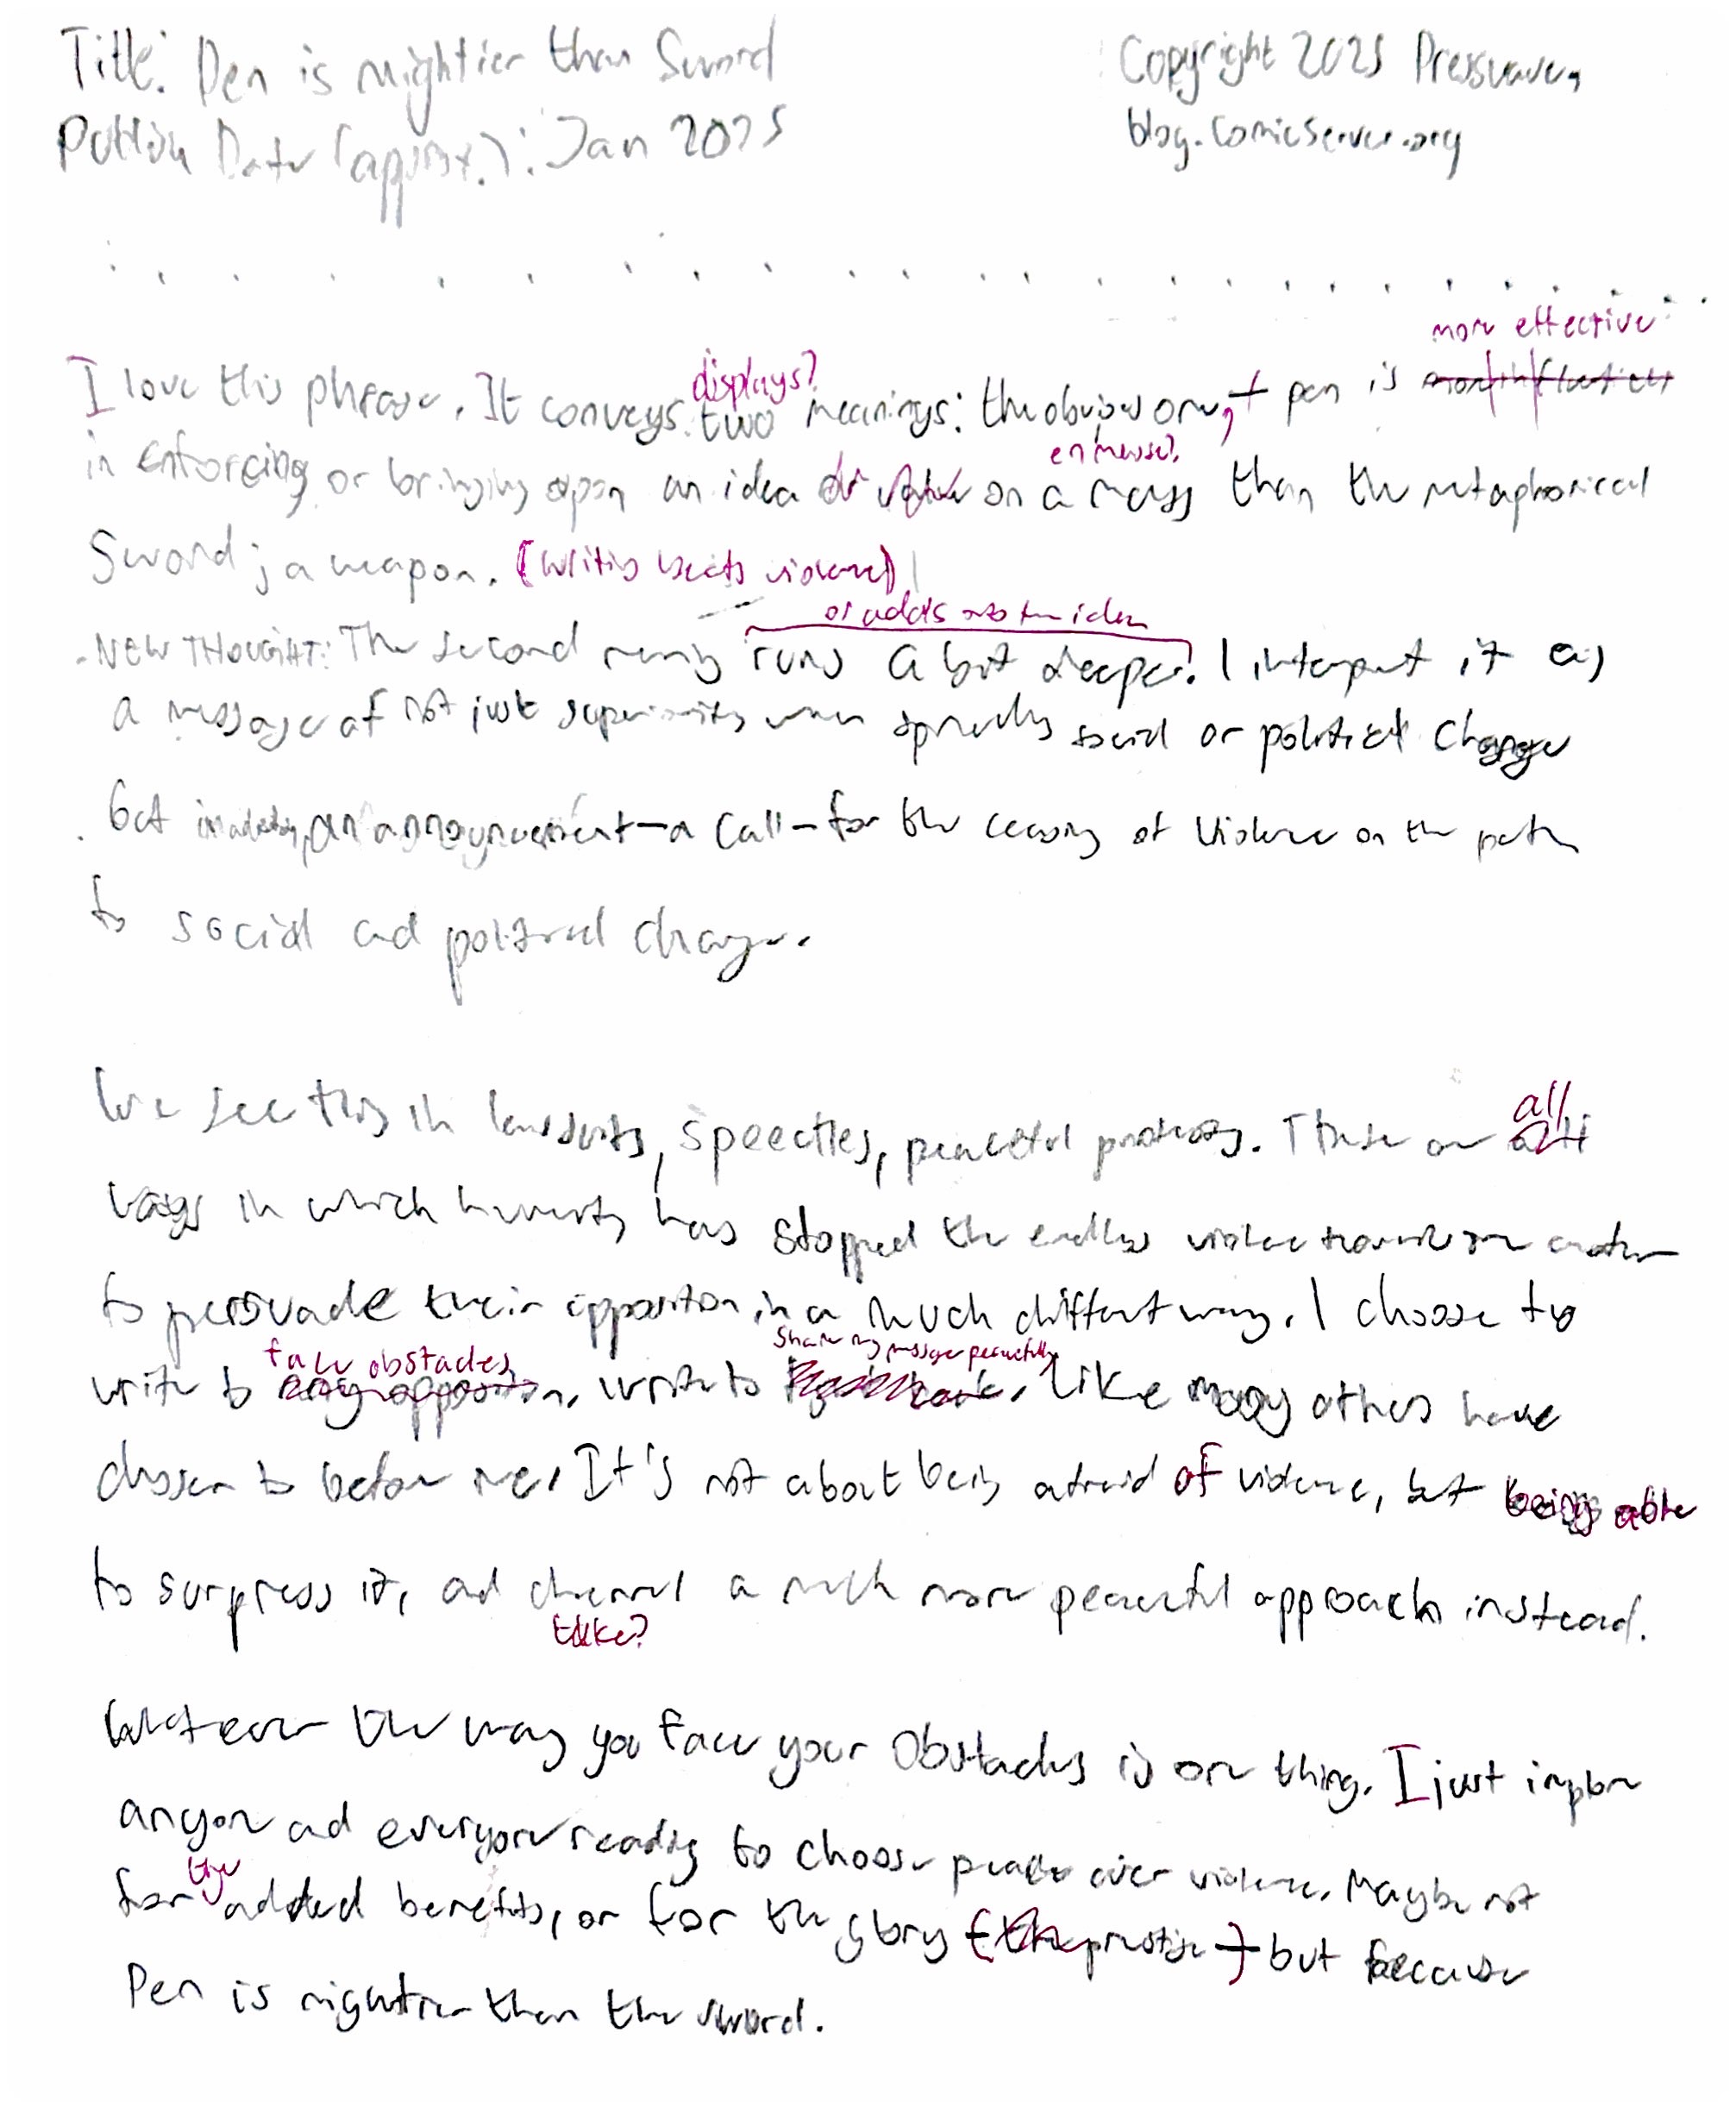 Title: Pen is mightier than Sword
Copyright 2025
blog.comicserver.org
Date (approx.): Jan 2025
more effective
displays?
I love this phrase. It conveys two meanings: the obvious one, pen is
en masse?
in enforcing or bringing upon an idea on a mass than the metaphorical
Sword; a weapon. (writing beats violence)
or adds onto the idea
- NEW THOUGHT: The second meaning runs a bit deeper. I interpret it as
a message of not just superiority when spreading social or political change
but in addition, an announcement—a call—for the ceasing of violence on the path
to social and political change.
all
We see this in lawsuits, speeches, peaceful protests. These are
ways in which humanity has stopped the endless violence towards one another
to persuade their opposition in a much different way. I choose to
face obstacles
share my message peacefully
write to any opposition, write to, like many others have
chosen to before me. It's not about being afraid of violence, but being able
to surpress it, and channel a much more peaceful approach instead.
take?
Whatever the way you face your obstacles is one thing. I just implore
anyone and everyone reading to choose peace over violence. Maybe not
the
for added benefits, or for the glory (the prestige) but because
Pen is mightier than the sword.